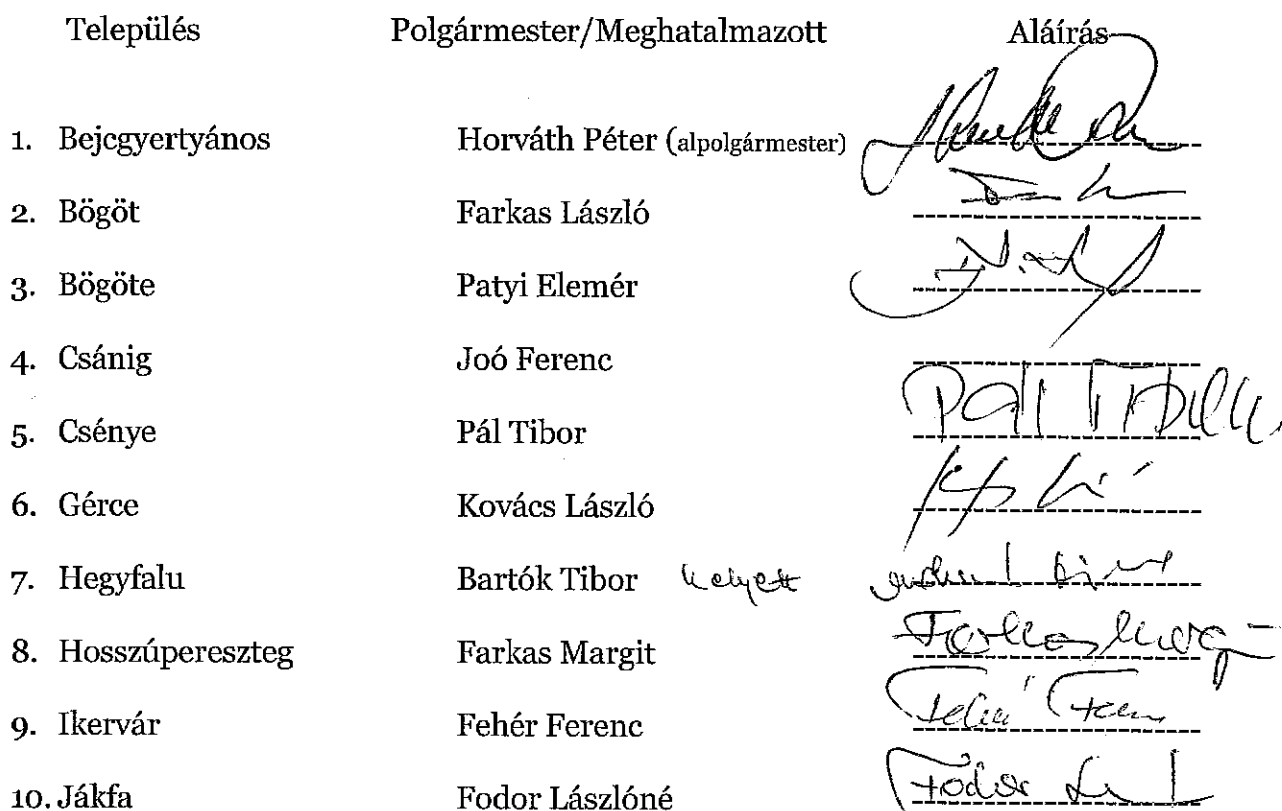 Település Polgármester/Meghatalmazott Aláírás
1. Bejcgyertyános Horváth Péter (alpolgármester)
2. Bögöt Farkas László
3. Bögöte Patyi Elemér
4. Csánig Joó Ferenc
5. Csénye Pál Tibor Pál Tibor
6. Gérce Kovács László
7. Hegyfalu Bartók Tibor helyett
8. Hosszúpereszteg Farkas Margit Farkas Margit
9. Ikervár Fehér Ferenc Fehér Ferenc
10. Jákfa Fodor Lászlóné Fodor